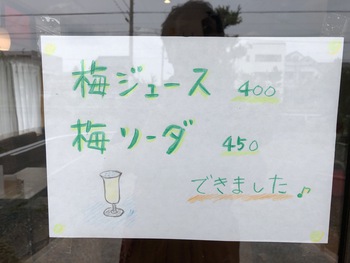 梅ジュース 400
梅ソーダ 450
できました♪